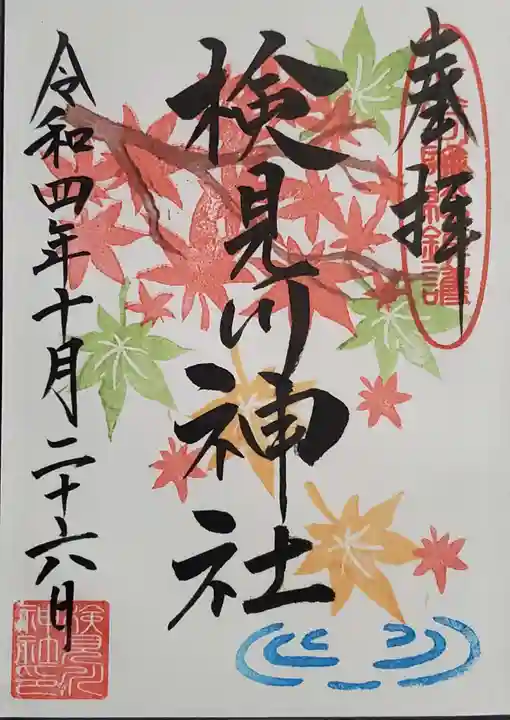 奉拝
検見川神社
令和四年十月二十六日
検見川
神社印